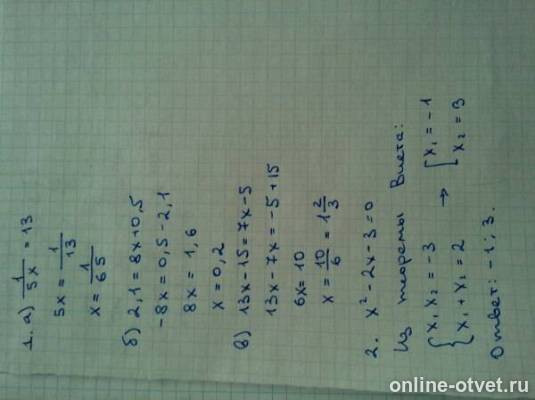 1. а) 1/5x = 13
5x = 1/13
x = 1/65
б) 2,1 = 8x + 0,5
-8x = 0,5 - 2,1
8x = 1,6
x = 0,2
в) 13x - 15 = 7x - 5
13x - 7x = -5 + 15
6x = 10
x = 10/6 = 1 2/3
2. x² - 2x - 3 = 0
Из теоремы Виета:
{ x₁x₂ = -3 → [ x₁ = -1
{ x₁ + x₂ = 2 [ x₂ = 3
Ответ: -1; 3.
online-otvet.ru